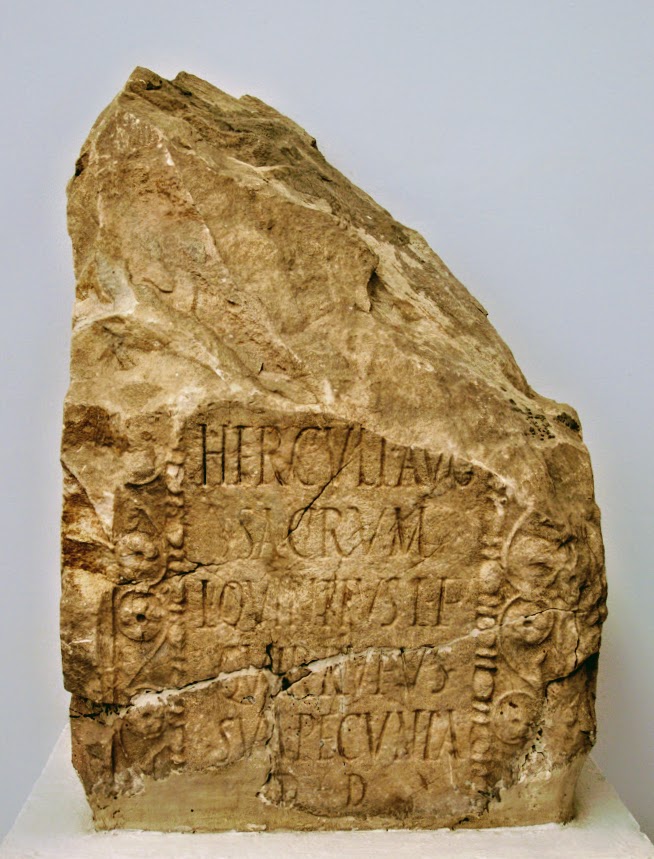 HERCVLI AVG
SACRVM
L QVINTIVS L F
RVFVS
SVA PECVNIA
D D